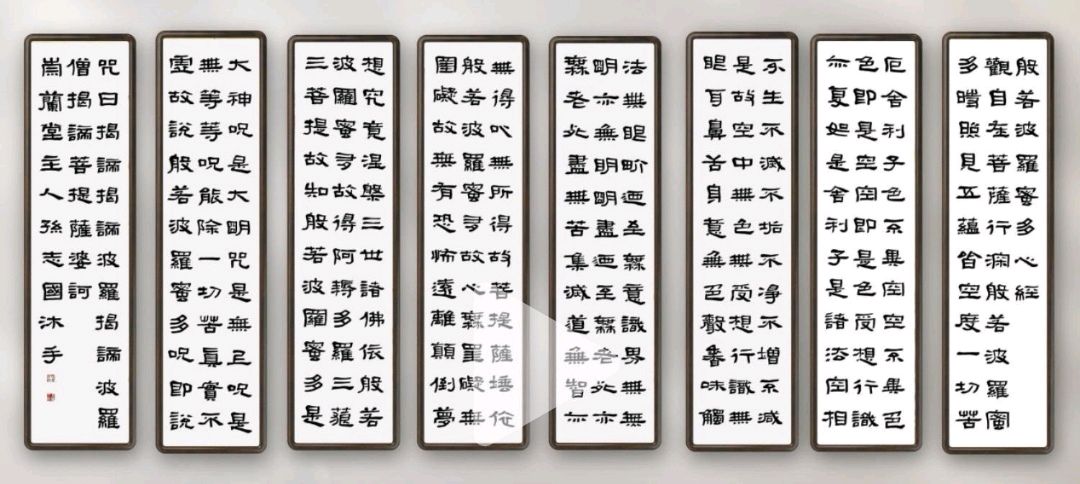 般若波羅蜜多心經
觀自在菩薩行深般若波羅蜜
多時照見五蘊皆空度一切苦
厄舍利子色不異空空不異色
色即是空空即是色受想行識
亦復如是舍利子是諸法空相
不生不滅不垢不淨不增不減
是故空中無色無受想行識無
眼耳鼻舌身意無色聲香味觸
法無眼界迺至無意識界無無
明亦無明明盡迺至無老死亦
無老死盡無苦集滅道無智亦
無得以無所得故菩提薩埵依
般若波羅蜜多故心無罣礙無
罣礙故無有恐怖遠離顛倒夢
想究竟涅槃三世諸佛依般若
波羅蜜多故得阿耨多羅三藐
三菩提故知般若波羅蜜多是
大神呪是大明咒是無上呪是
無等等呪能除一切苦真實不
虛故說般若波羅蜜多呪即說
咒曰揭諦揭諦波羅揭諦波羅
僧揭諦菩提薩婆訶
崇蘭堂主人孫志國沐手